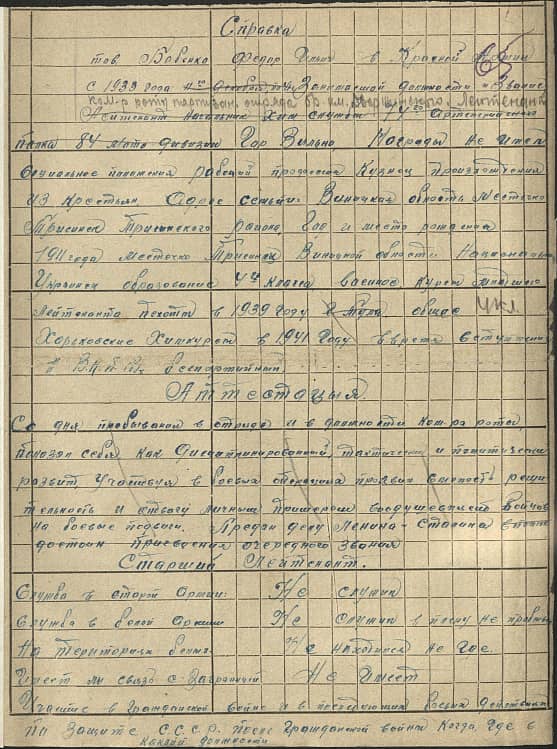 Справка
тов Бабенко Федор Ильич в Красной Армии
с 1933 года Занимаемой должности и Звание
ком-р роты партизан. отряда бр. им. Дзержинского. Лейтенант
Начальник Хим службы 74го Артелерийского
полка 84 мото дивизии Гор Вильно, Награды Не имел
Социальное положения рабочий професия Кузнец произхождения
из крестьян. Адрес семьи: Виницкая область местечко
Рай­она, Год и место рождения
1911 года местечко Виницкой области Национальн
Украинец образование 4 класса военное, курсы младшего
лейтенанта пехоты в 1939 году г Тула общее 4 кл.
Харьковские Химкурсы в 1941 году вовремя вступления
в В.К.П.(б) беспартийный
Аттестация.
Со дня пребывания в отряде и в должности ком-ра роты,
показал себя как дисциплинированный, тактически и политически
развит. Участвуя в боевых операциях проявил смелость реши
тельность и отвагу личным примером воодушевлял бойцов
на боевые подвиги. Предан делу Ленина-Сталина
достоин присвоения очередного звания
Старший Лейтенант.
Служба в старой армии: Не служил
Служба в белой армии Не служил в плену не
На територии белых Не находился не где.
Имеет ли связь с Заграницей Не имеет
Участие в Гражданской войне и в последующих боевых действиях
По Защите С.С.С.Р. после Гражданской войны Когда, Где в
какой должности